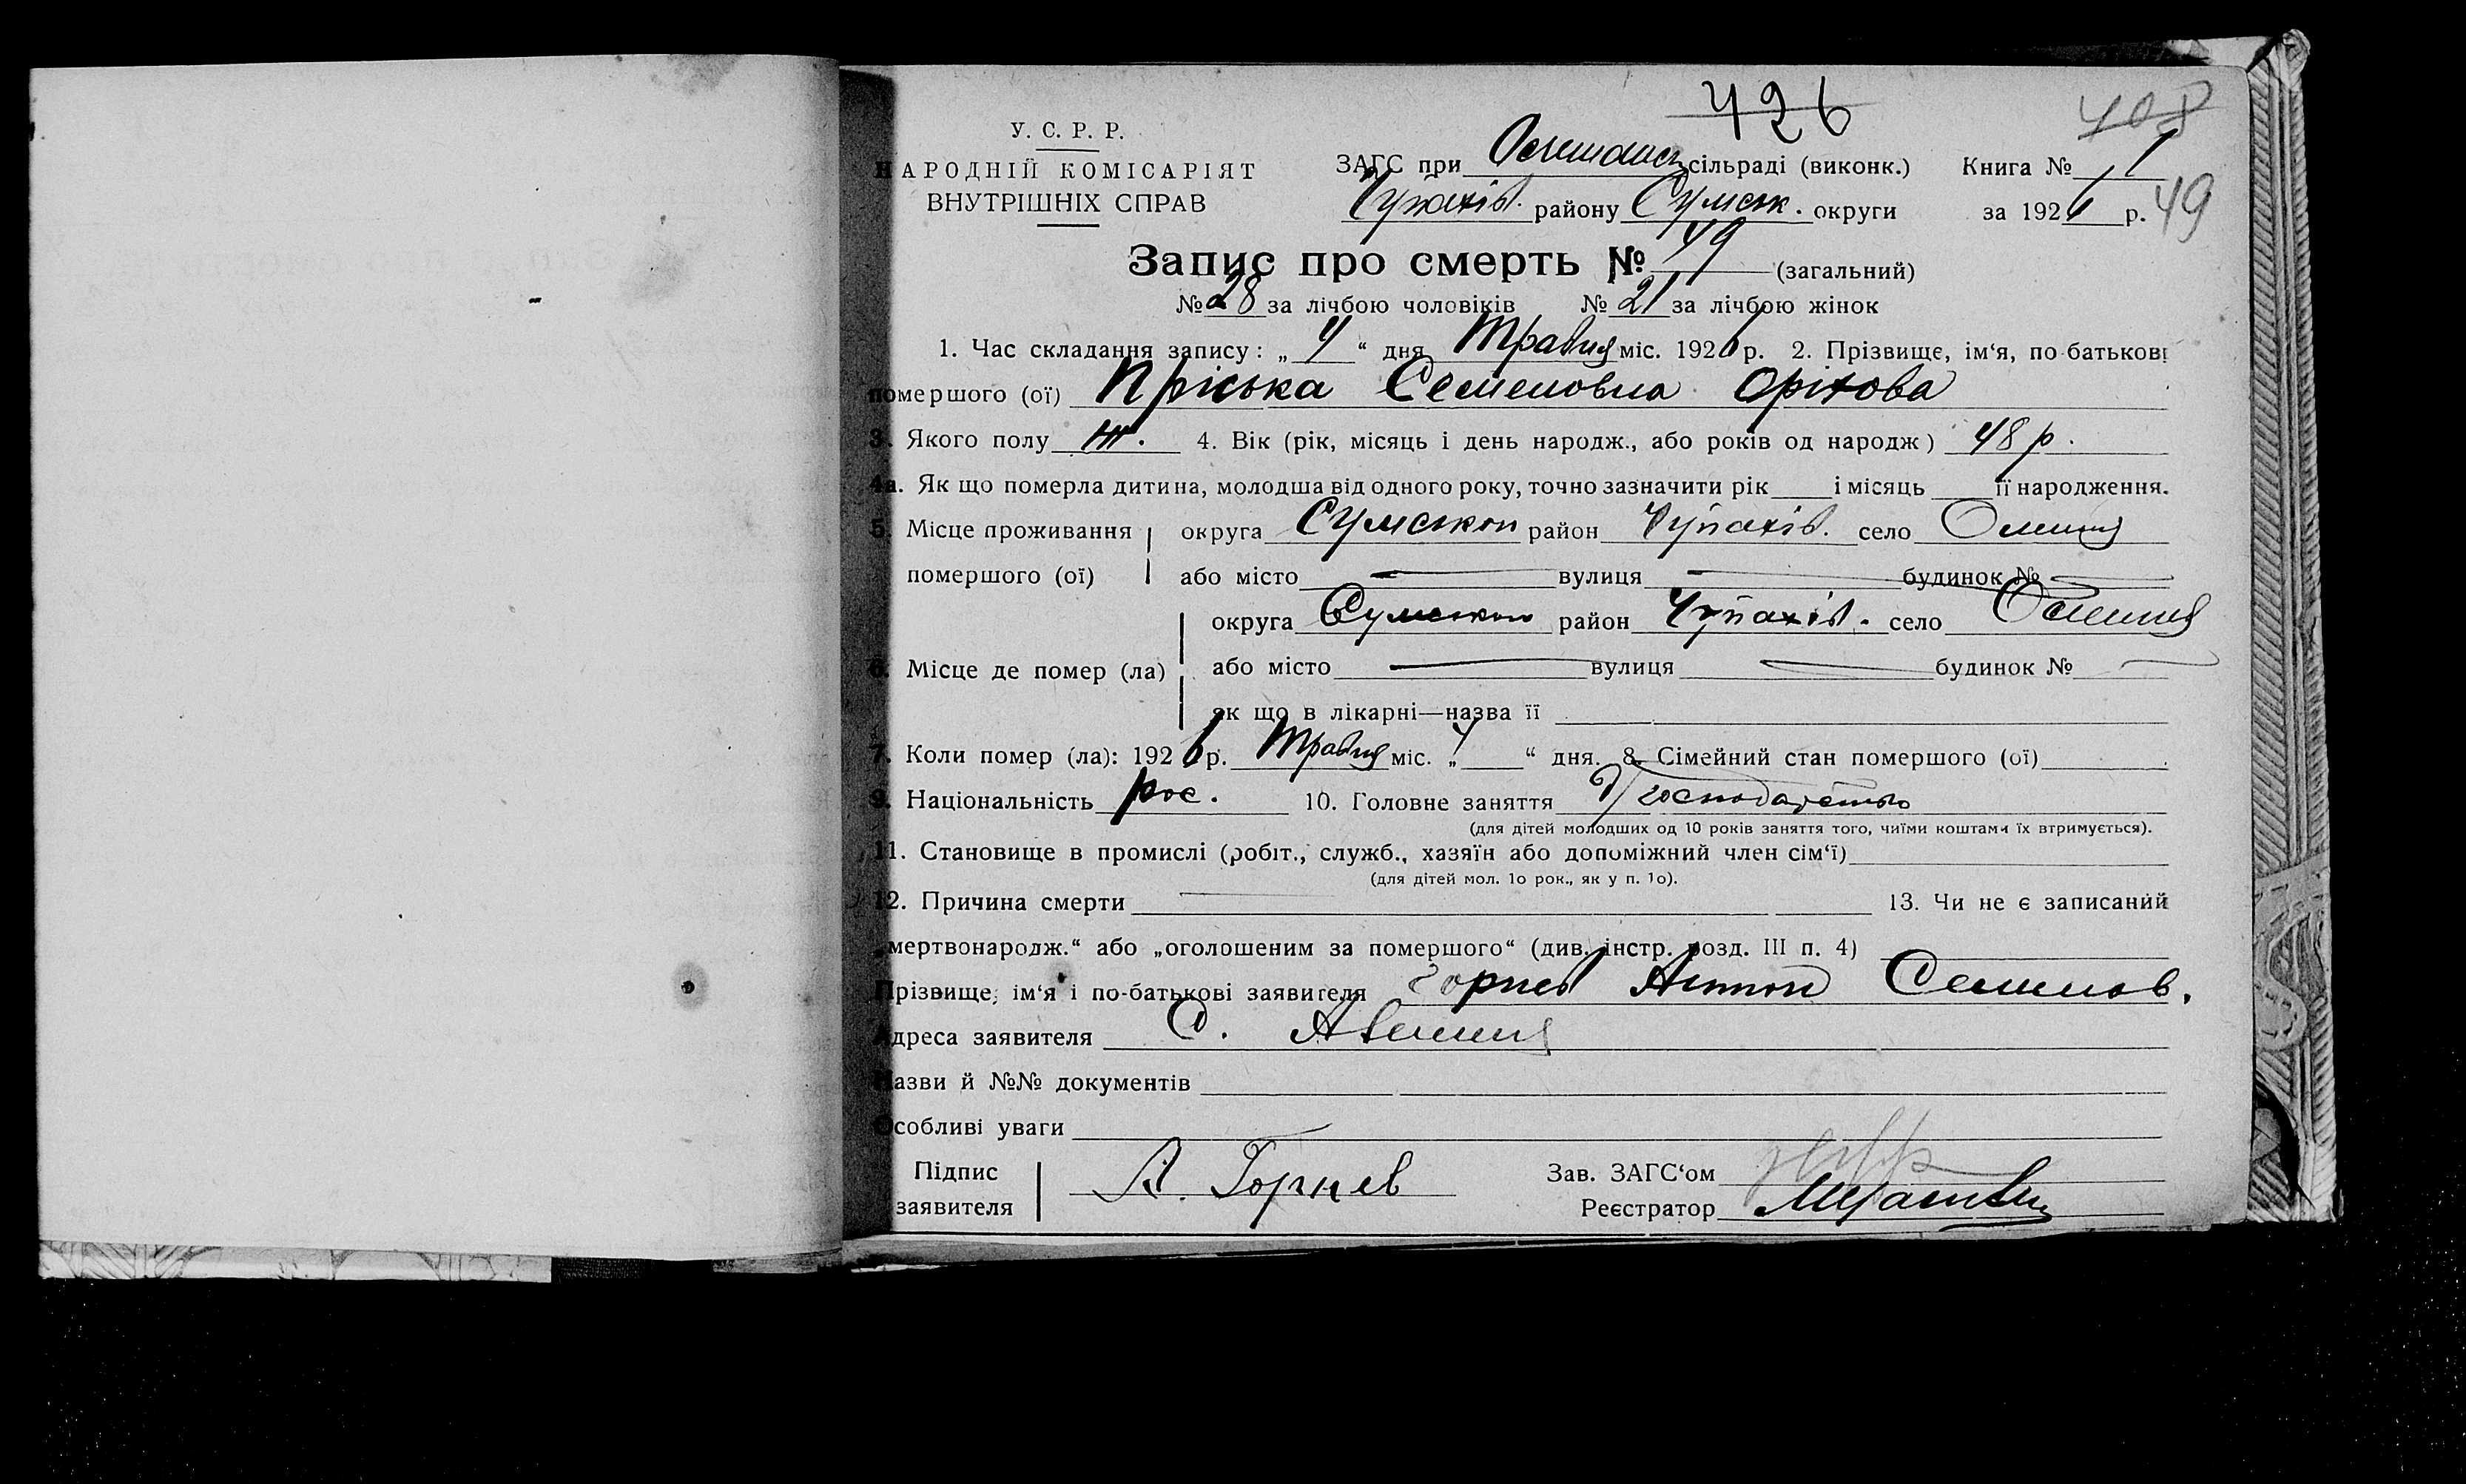 426
408
У. С. Р. Р.
НАРОДНІЙ КОМІСАРІЯТ
ВНУТРІШНІХ СПРАВ
ЗАГС при сільраді (виконк.) Книга № 1
Чупахів. району Сумськ. округи за 1926 р. 49
Запис про смерть № 49 (загальний)
№ 28 за лічбою чоловіків № 21 за лічбою жінок
1. Час складання запису: „4“ дня Травня міс. 1926 р. 2. Прізвище, ім‘я, по-батькові
помершого (ої) Пріська Семеновна Оріхова
3. Якого полу ж. 4. Вік (рік, місяць і день народж., або років од народж) 48 р.
4а. Як що померла дитина, молодша від одного року, точно зазначити рік і місяць її народження.
5. Місце проживання округа Сумськоп район Чупахів. село
помершого (ої) або місто — вулиця — будинок № —
округа Сумськоп район Чупахів. село
6. Місце де помер (ла) або місто — вулиця — будинок № —
як що в лікарні—назва її
7. Коли помер (ла): 1926 р. Травня міс. „4“ дня. 8. Сімейний стан помершого (ої)
9. Національність рос. 10. Головне заняття
(для дітей молодших од 10 років заняття того, чиїми коштами їх втримується).
11. Становище в промислі (робіт., служб., хазяїн або допоміжний член сім‘ї)
(для дітей мол. 1о рок., як у п. 1о).
12. Причина смерти — 13. Чи не є записаний
„мертвонародж.“ або „оголошеним за помершого“ (див. інстр. розд. III п. 4)
Прізвище, ім‘я і по-батькові заявителя Горнев Антон Семенов.
Адреса заявителя С.
Назви й №№ документів
Особливі уваги
Підпис А. Горнев Зав. ЗАГС‘ом
заявителя Реєстратор